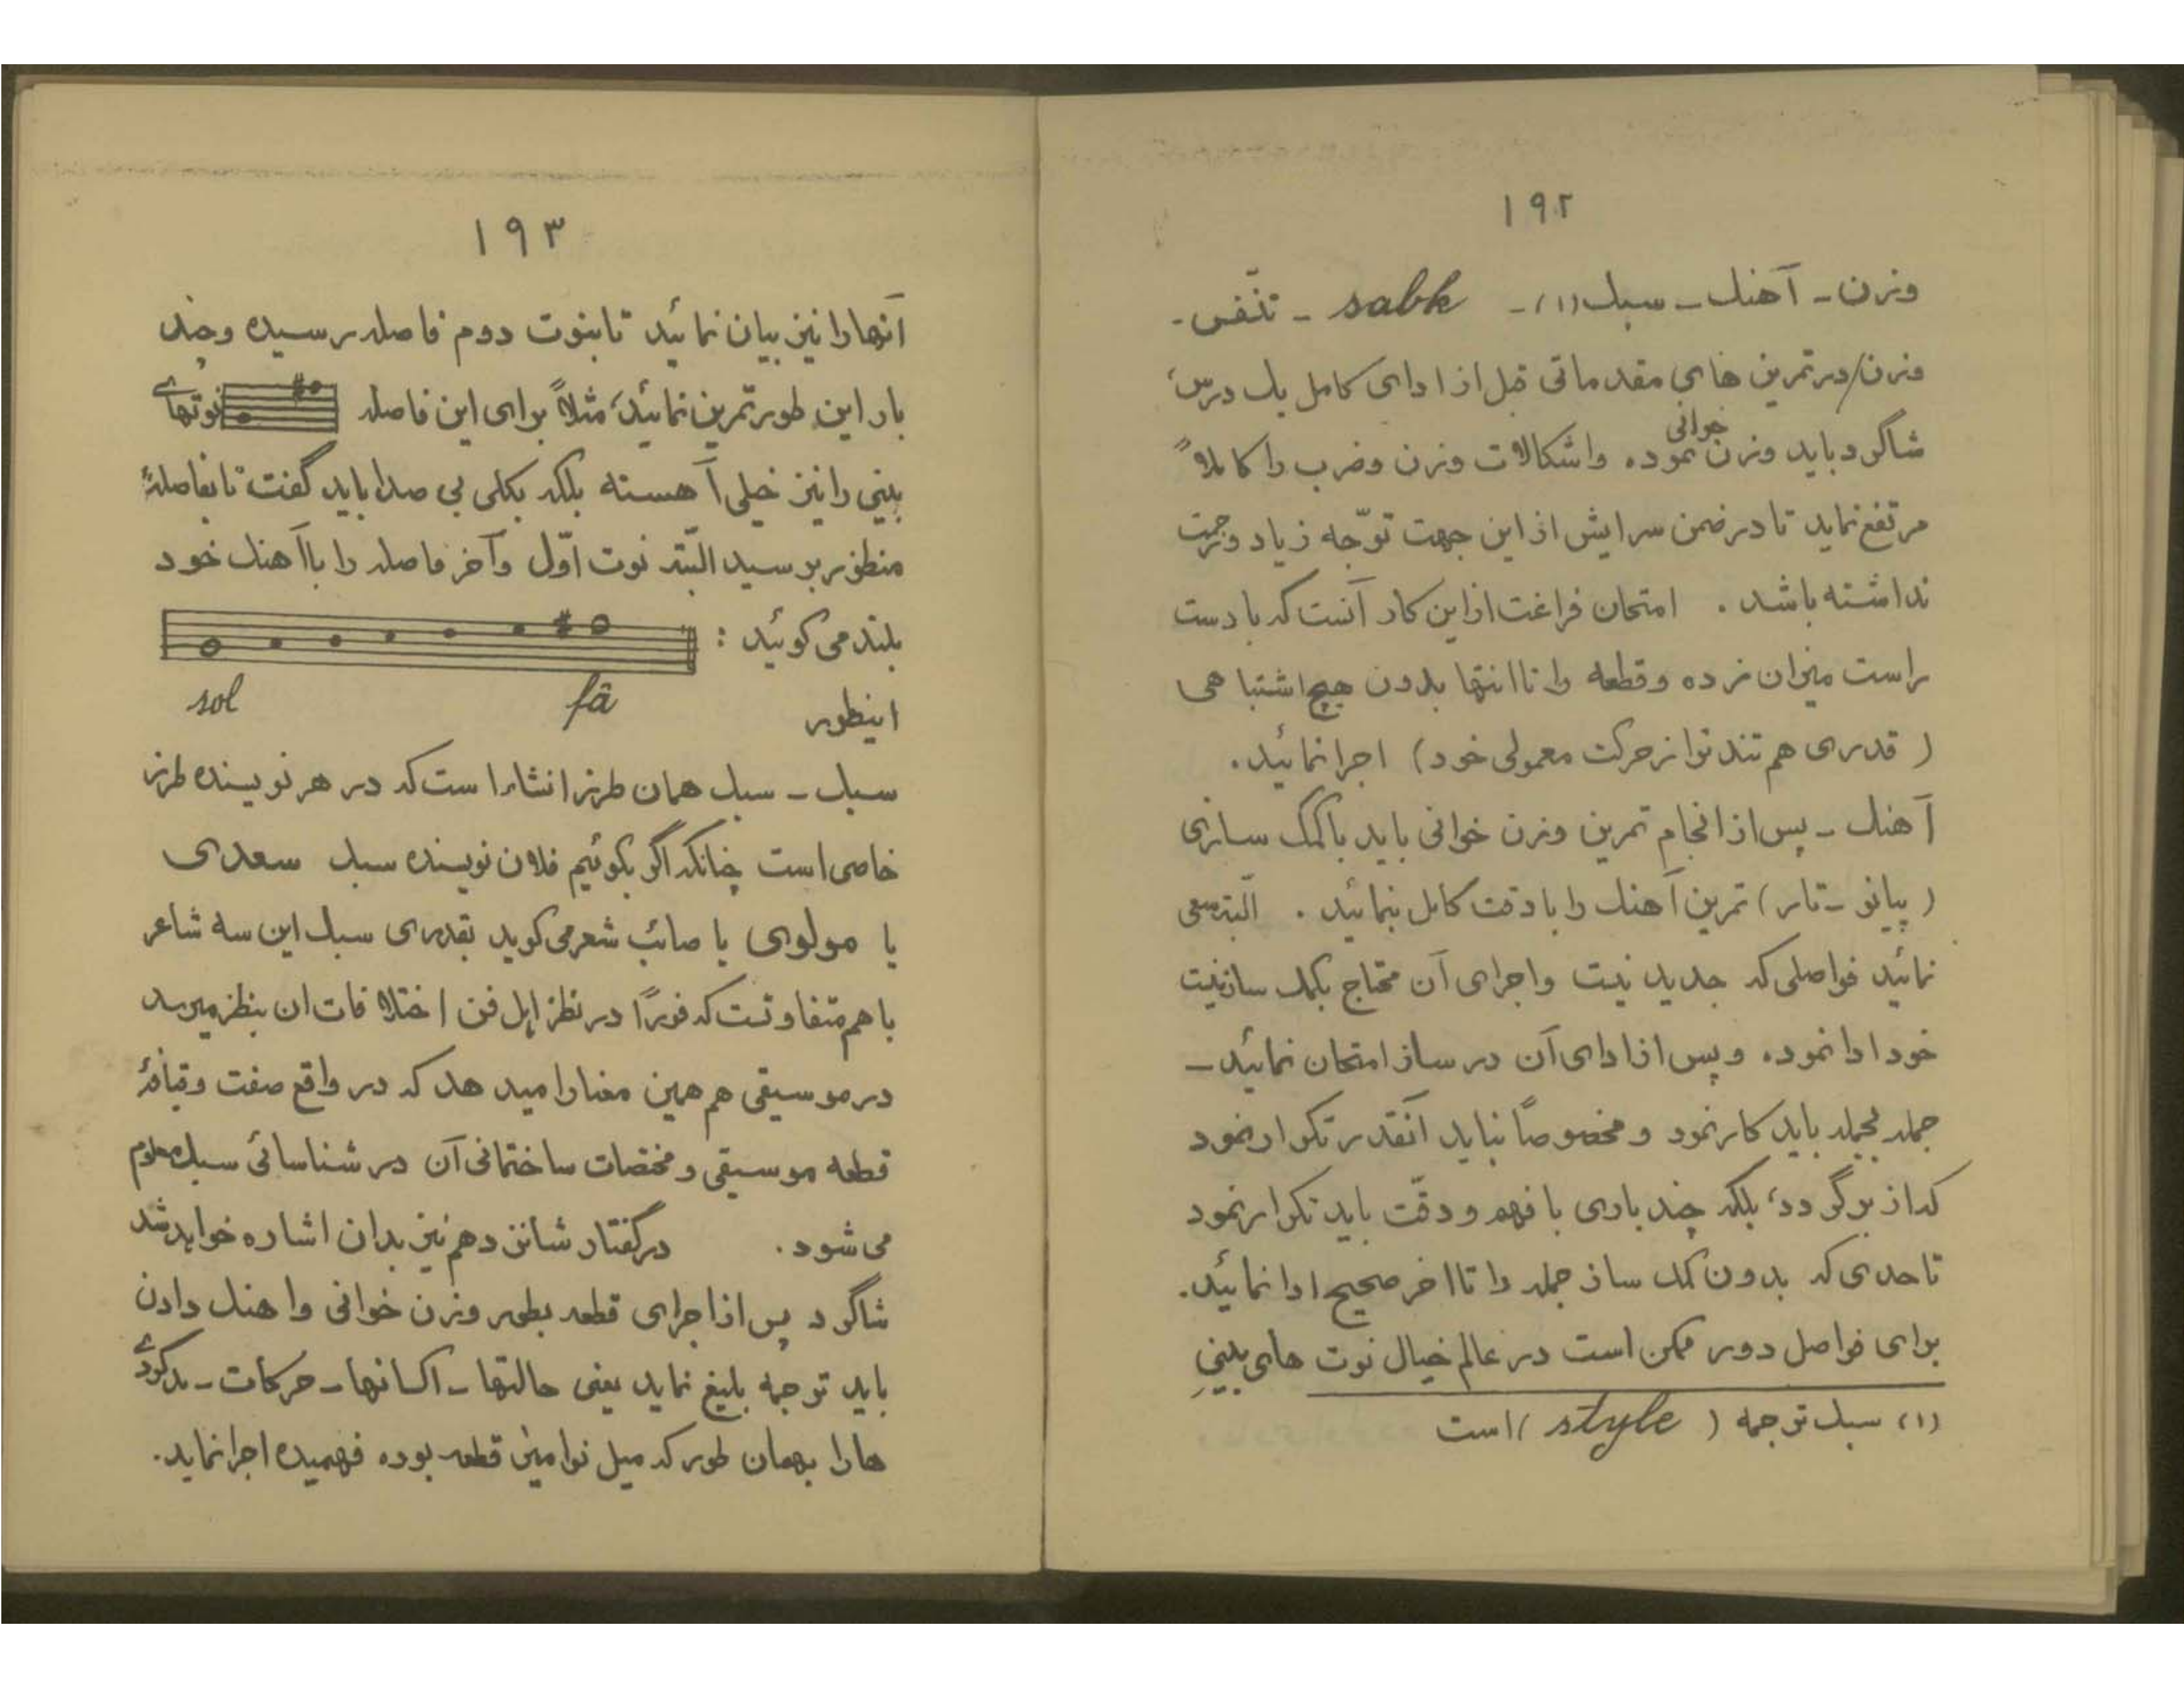 ۱۹۲
وزن - آهنك - سبك (۱) - sabk - تنفّس -
وزن/در تمرین های مقدماتی قبل از ادای کامل یك درس،
شاگرد باید وزن خوانی نموده واشکالات وزن وضرب را کاملاً
مرتفع نماید تا در ضمن سرایش از این جهت توّجه زیاد وزحمت
نداشته باشد . امتحان فراغت از این کار آنست که با دست
راست میزان زده وقطعه را تا انتها بدون هیچ اشتباهی
( قدری هم تند تر از حرکت معمولی خود) اجرا نمائید .
آهنك - پس از انجام تمرین وزن خوانی باید باکمک سازی
( پیانو - تار ) تمرین آهنك را با دقت کامل بنمائید . البّته سعی
نمائید فواصلی که جدید نیست واجرای آن محتاج بکمك ساز نیست
خود ادا نموده وپس از ادای آن در ساز امتحان نمائید -
جمله بجمله باید کار نمود و مخصوصاً نباید آنقدر تکرار نمود
که از بر گردد، بلکه چند باری با فهم و دقّت باید تکرار نمود
تا حدی که بدون کمك ساز جمله را تا اخر صحیح ادا نمائید.
برای فواصل دور ممکن است در عالم خیال نوت های بینیِ
(۱) سبك ترجمه ( style ) است
۱۹۳
آنها را نیز بیان نمائید تا بنوت دوم فاصله رسیده وچند
بار این طور تمرین نمائید، مثلاً برای این فاصله نوتهای
بینی را نیز خیلی آهسته بلکه بکلی بی صدا باید گفت تا بفاصلهٔ
منظور برسید البّته نوت اوّل وآخر فاصله را با آهنك خود
بلند می گوئید :
sol fâ
اینطور
سبك - سبك همان طرز انشاء است که در هر نویسنده طرز
خاصی است چنانکه اگر بگوئیم فلان نویسنده سبك سعدی
یا مولوی یا صائب شعر می گوید بقدری سبك این سه شاعر
با هم متفاوتست که فوراً در نظر اهل فن اختلافات ان بنظر میرسد
در موسیقی هم همین معنا را میدهد که در واقع صفت وقیافهٔ
قطعه موسیقی و مختصات ساختمانی آن در شناسائی سبك معلوم
می شود . در گفتار شانزدهم نیز بدان اشاره خواهد شد
شاگرد پس از اجرای قطعه بطور وزن خوانی وا هنك دادن
باید توجه بلیغ نماید یعنی حالتها - اکسانها - حرکات -
ها را بهمان طور که میل نوامیز قطعه بوده فهمیده اجرا نماید.